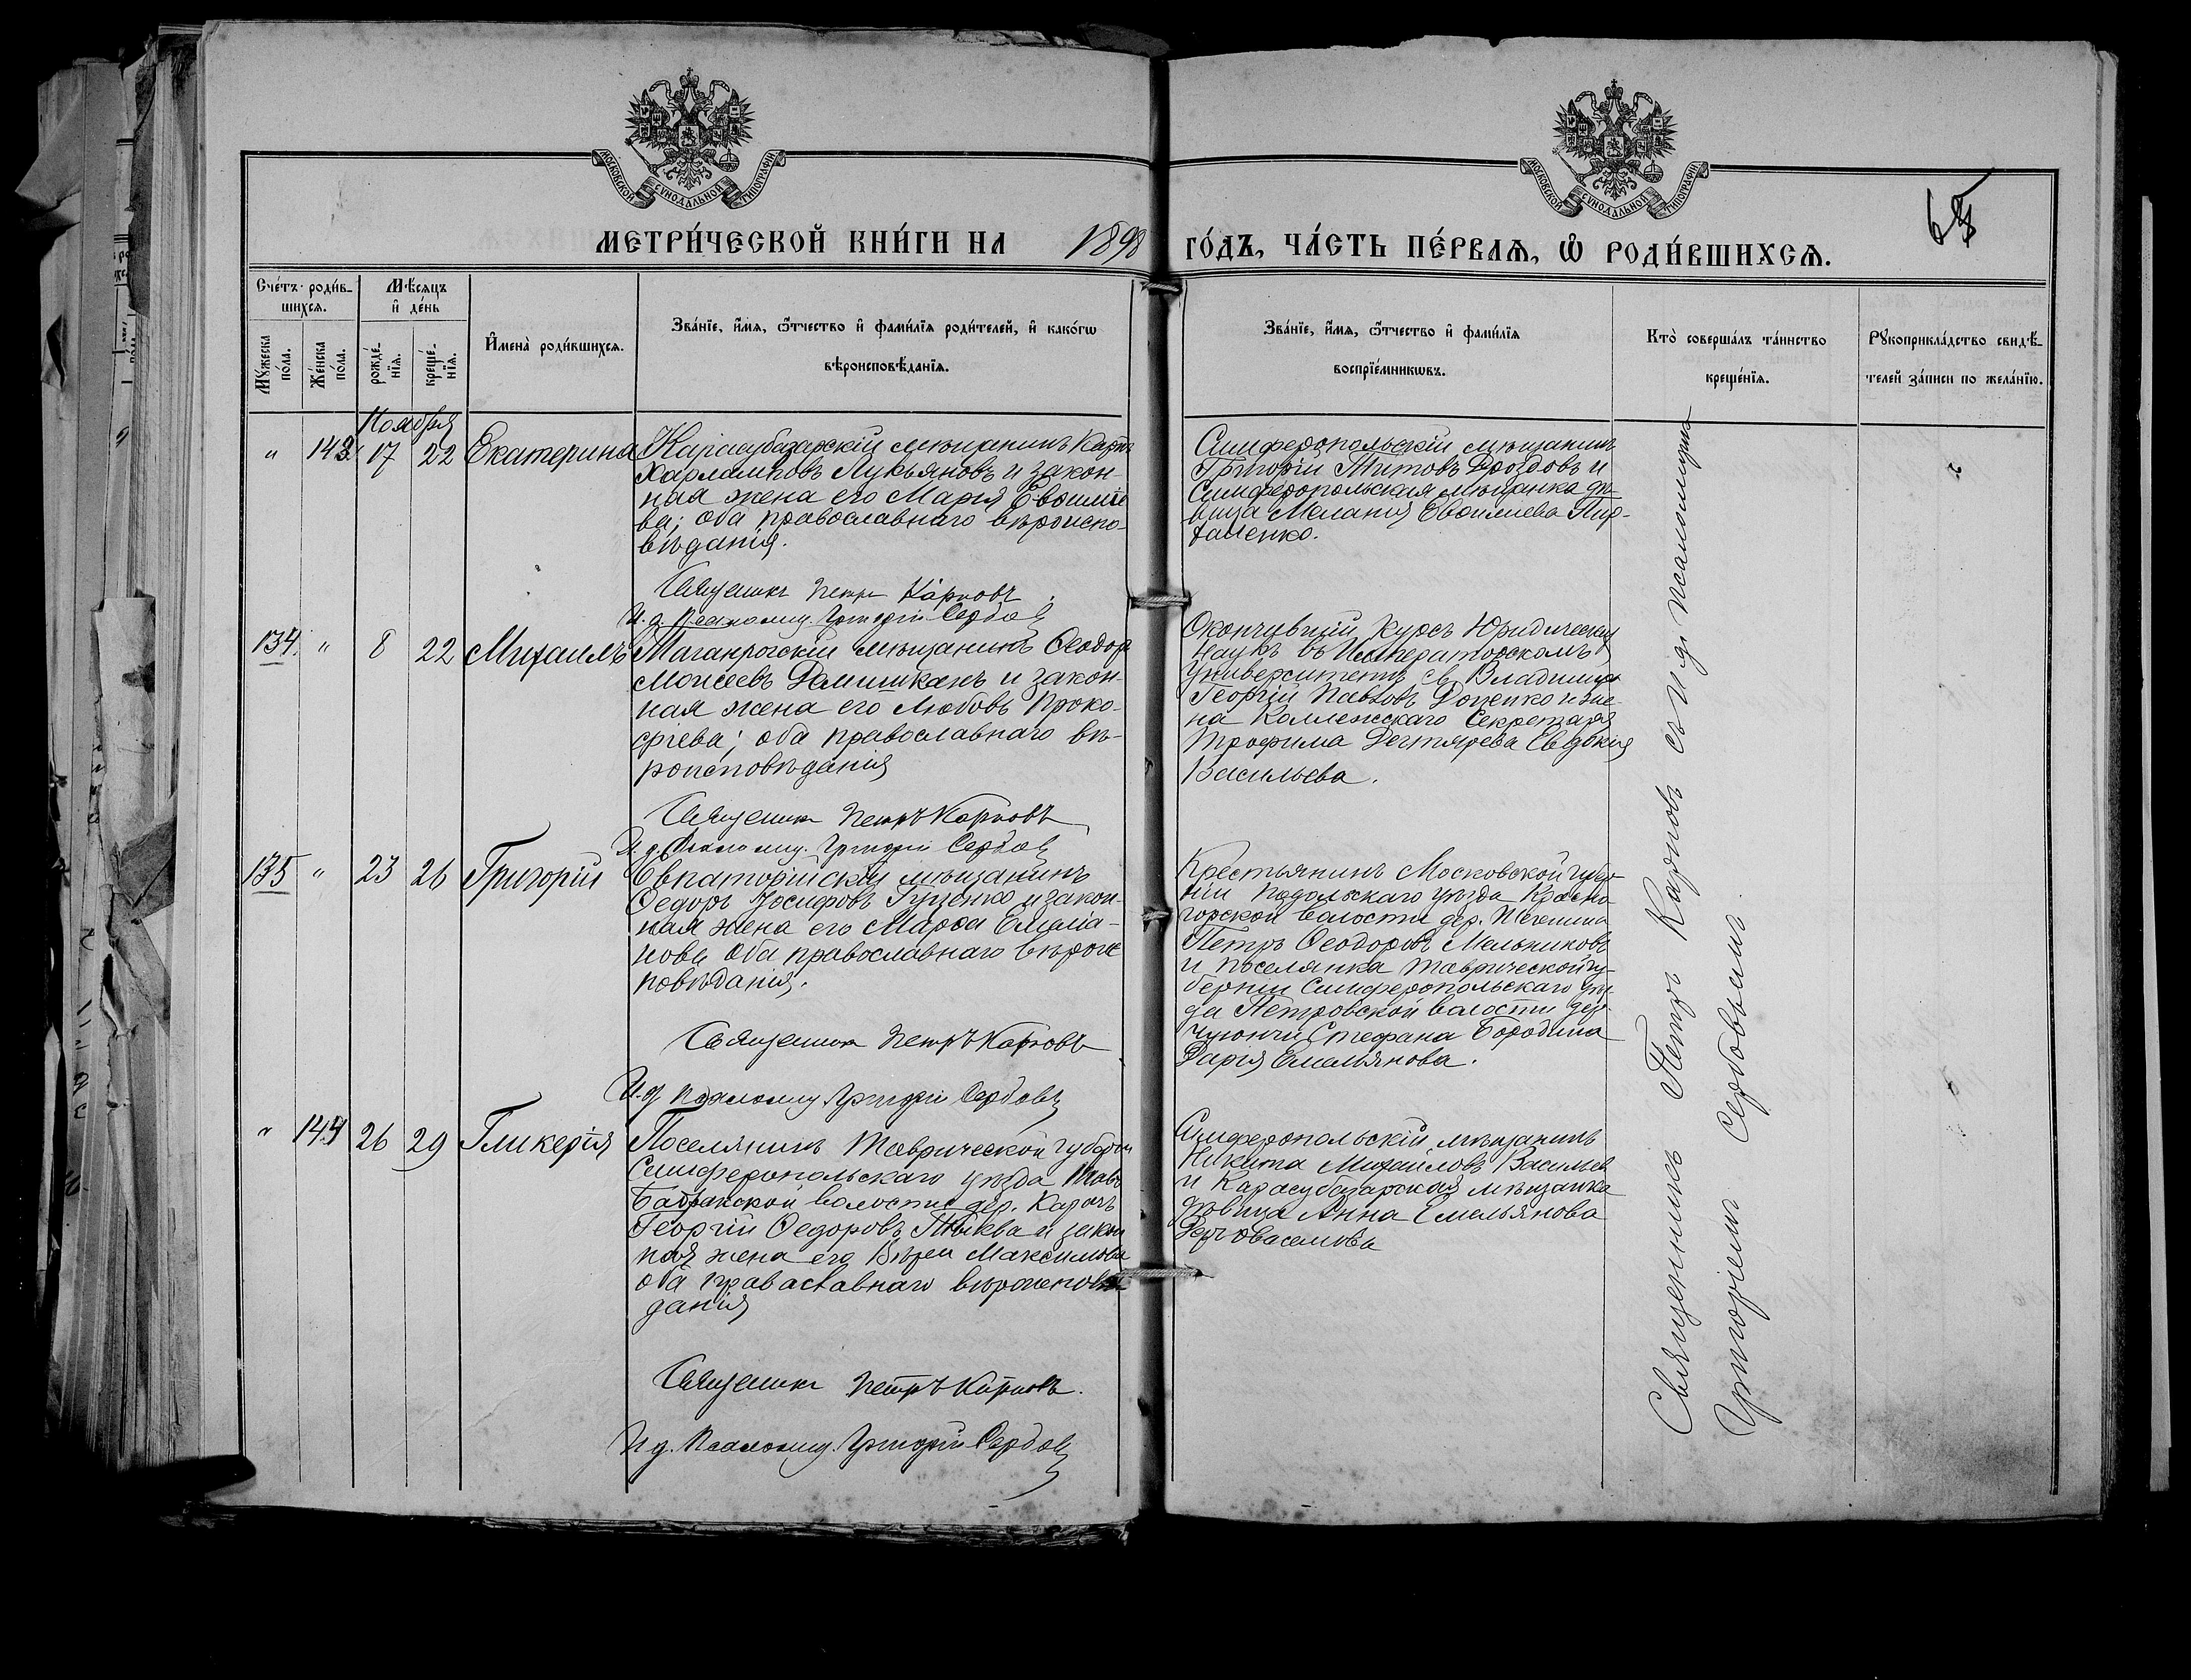 МОСКОВСКОЙ СѴНОДАЛЬНОЙ ТИПОГРАФІИ
МОСКОВСКОЙ СѴНОДАЛЬНОЙ ТИПОГРАФІИ
МЕТРИ́ЧЕСКОЙ КНИ́ГИ НА 1898 ГО́ДЪ, ЧА́СТЬ ПЕ́РВАѦ, Ѡ҆ РОДИ́ВШИХСѦ.
Сче́тъ роди́в-
шихсѧ.
Мꙋ́жеска по́ла.
Же́нска по́ла.
Мѣ́сѧцъ
и҆ де́нь
рожде́-
нїѧ.
креще́-
нїѧ.
И҆мена̀ роди́вшихсѧ.
Зва́нїе, и҆́мѧ, ѻ҆́тчество и҆ фами́лїѧ роди́телей, и҆ како́гѡ
вѣроисповѣ́данїѧ.
Зва́нїе, и҆́мѧ, ѻ҆́тчество и҆ фами́лїѧ
воспрїе́мникѡвъ.
Кто̀ соверша́лъ та́инство
креще́нїѧ.
Рꙋкоприкла́дство свидѣ́-
телей за́писи по жела́нїю.
Ноября
" 143. 17 22 Екатерина
Карасубазарскій мѣщанинъ
Харлампіовъ Лукьяновъ и закон-
ная жена его Марія Евоиміе
ва; оба православнаго вѣроиспо-
вѣданія.
Священникъ Петръ Карповъ
И.д. Псаломщ. Григорій Сербовъ
Симферопольскій мѣщанинъ
Григорій Титовъ Дроздовъ и
Симферопольская мѣщанка дѣ-
вица Меланія Евоиміева
134. " 8 22 Михаилъ
Таганрогскій мѣщанинъ Ѳеодоръ
Моисеевъ и закон-
ная жена его Любовь Проко-
фіева; оба православнаго вѣ-
роисповѣданія
Священникъ Петръ Карповъ
И.д. Псаломщ. Григорій Сербовъ
Окончившій курсъ Юридическихъ
наукъ въ Императорскомъ
Университетѣ св. Владиміра
Георгій Павловъ Доценко и же-
на Коллежскаго Секретаря
Трофима Дегтярева Евдокія
Васильева.
135 " 23 26 Григорій
Евпаторійскій мѣщанинъ
Ѳедоръ Іосифовъ Гуценко и закон-
ная жена его Марѳа Емеліа-
нова оба православнаго вѣроис
повѣданія.
Священникъ Петръ Карповъ
И.д. Псаломщ. Григорій Сербовъ
Крестьянинъ Московской губер-
ніи Подольскаго уѣзда Красно-
горской волости дер.
Петръ Ѳеодоровъ Мельниковъ
и поселянка Таврической гу-
берніи Симферопольскаго уѣз-
да Петровской волости дер.
Стефана Бородина
Дарія Емельянова.
" 144 26 29 Гликерія
Поселянинъ Таврической губерніи
Симферопольскаго уѣзда Тавъ
Бадракской волости дер. Карачъ
Георгій Ѳедоровъ Тыква и закон
ная жена его Вѣра Максимова
оба православнаго вѣроисповѣ-
данія
Священникъ Петръ Карповъ.
И.д. Псаломщ. Григорій Сербовъ
Симферопольскій мѣщанинъ
Никита Михайловъ Васильев
и Карасубазарская мѣщанка
дѣвица Анна Емельянова
Священникъ Петръ Карповъ съ и.д. псаломщика
Григоріемъ Сербовымъ.